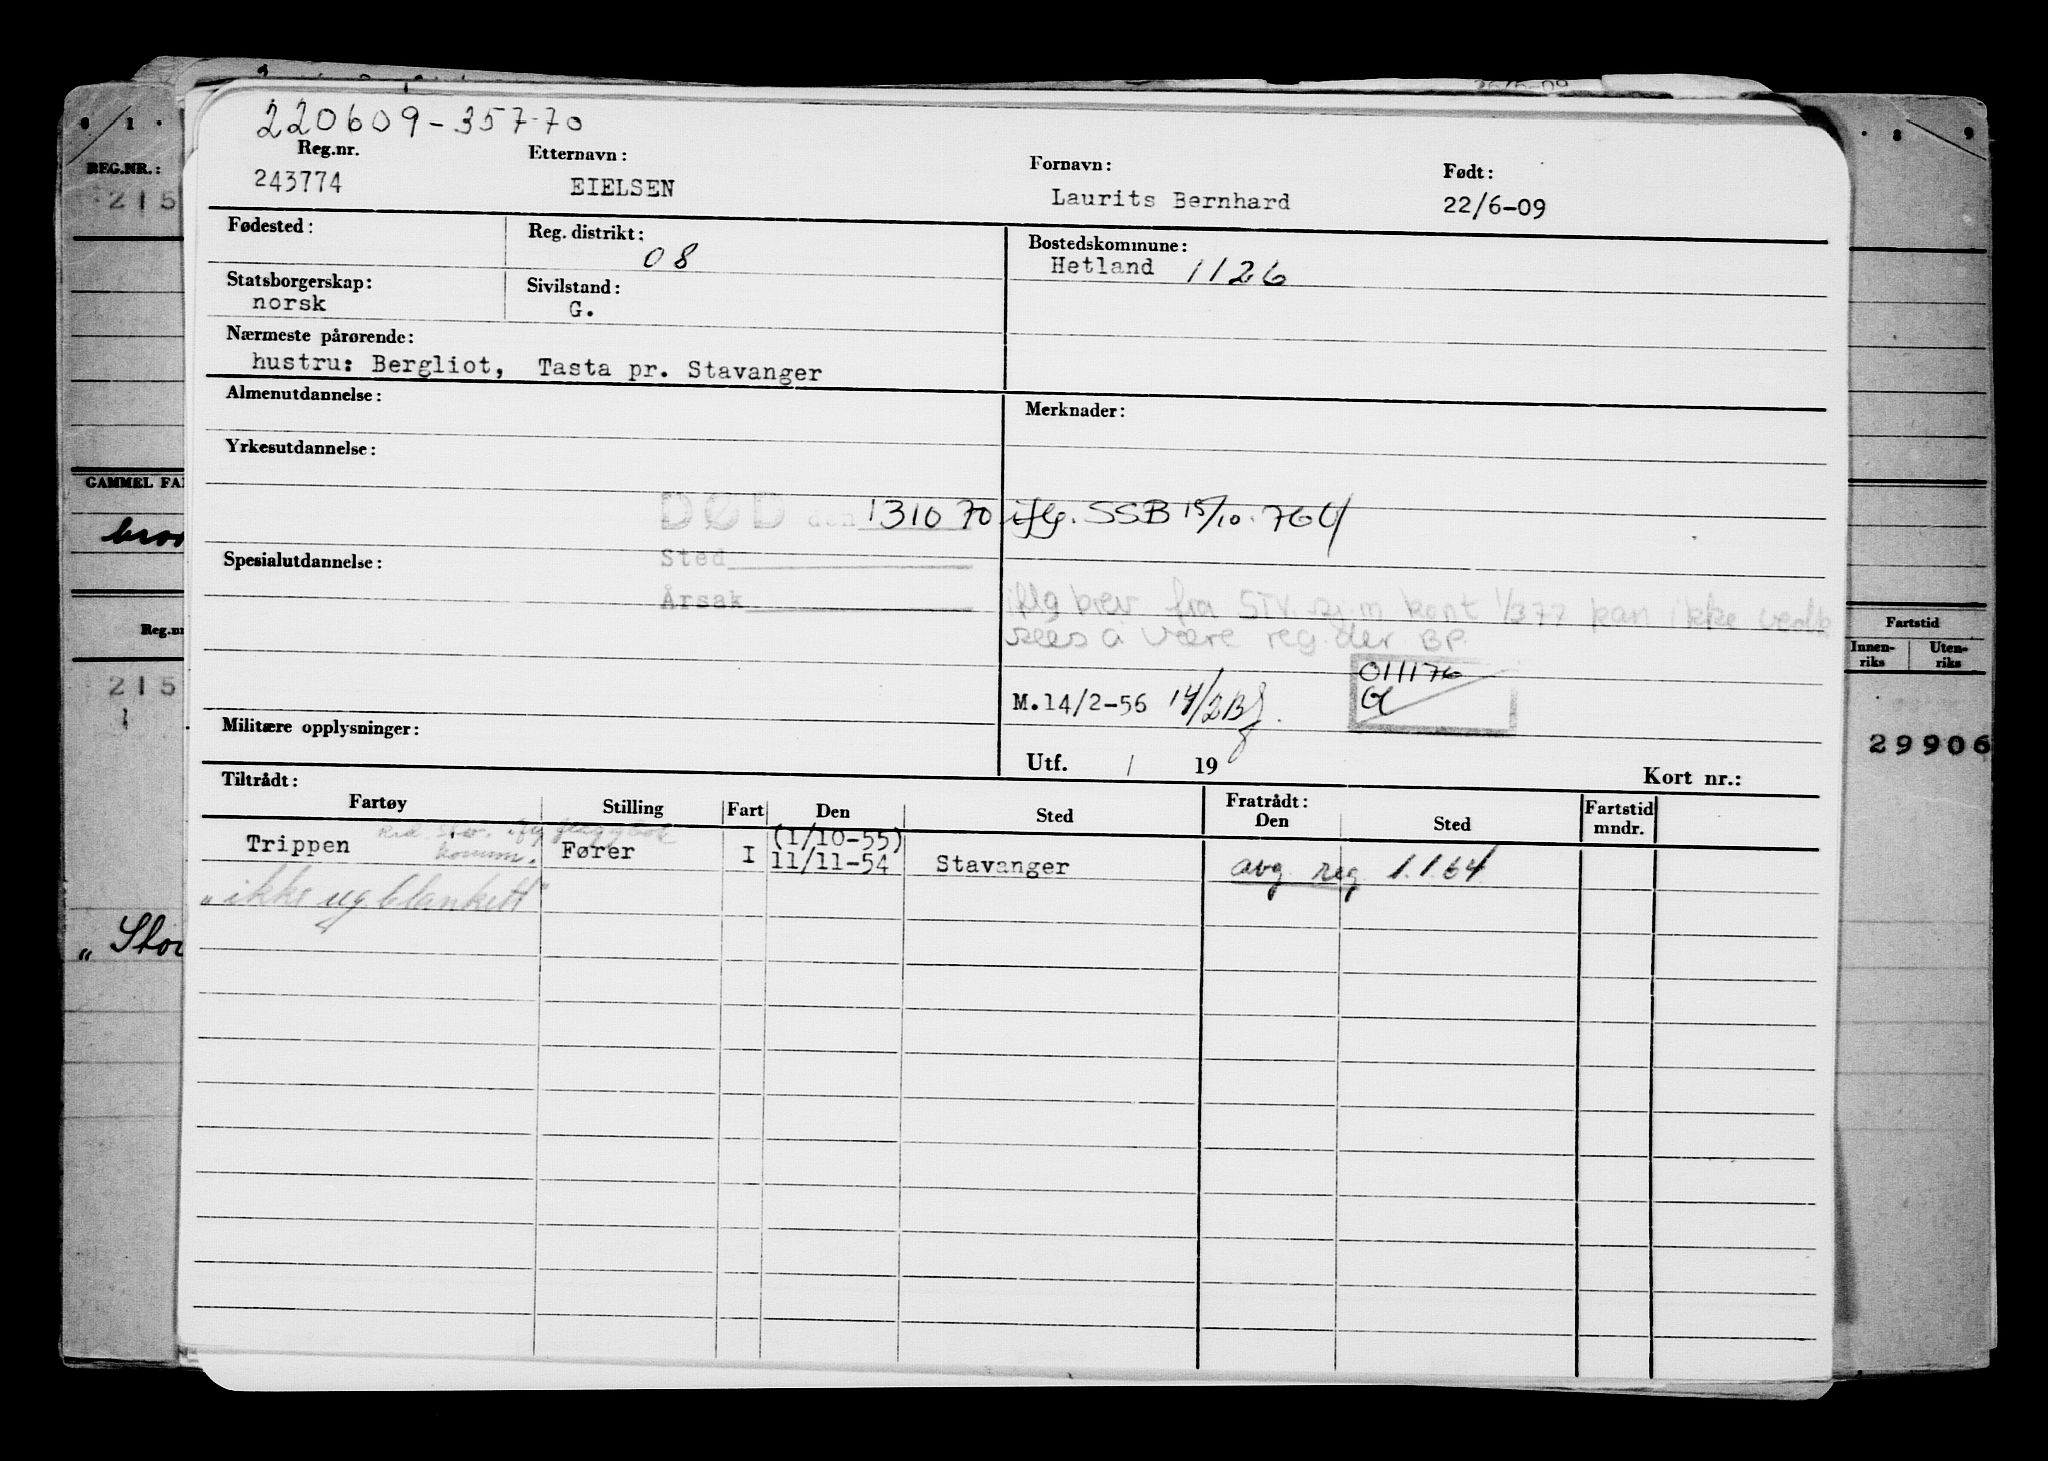 220609-35770
Reg.nr. Etternavn: Fornavn: Født:
243774 EIELSEN Laurits Bernhard 22/6-09
Fødested: Reg. distrikt: 08 Bostedskommune:
Hetland 1126
Statsborgerskap: Sivilstand:
norsk G.
Nærmeste pårørende:
hustru: Bergliot, Tasta pr. Stavanger
Almenutdannelse: Merknader:
Yrkesutdannelse:
DØD den 131070 iflg. SSB 15/10.76
Sted
Spesialutdannelse:
Årsak
iflg brev fra STV. sj.m kont 1/377 kan ikke
sees å være reg. der BP.
011176
M.14/2-56 14/2
Militære opplysninger:
Utf. / 19 Kort nr.:
Tiltrådt: Fratrådt:
Fartøy Stilling Fart Den Sted Den Sted Fartstid mndr.
Trippen Fører I (1/10-55)
11/11-54 Stavanger avg. reg. 1.1.64
"ikke ug. blankett"
REG.NR.:
215
GAMMEL FA
Reg.nr
215
1
„ Sto
8 9
Fartstid
Innen-riks Uten-riks
29906